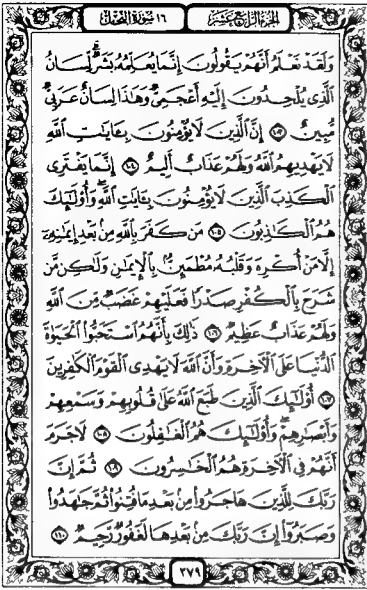 الجزء الرابع عشر
١٦ سورة النحل
وَلَقَدْ نَعْلَمُ أَنَّهُمْ يَقُولُونَ إِنَّمَا يُعَلِّمُهُۥ بَشَرٌ ۗ لِّسَانُ
ٱلَّذِى يُلْحِدُونَ إِلَيْهِ أَعْجَمِىٌّ وَهَٰذَا لِسَانٌ عَرَبِىٌّ
مُّبِينٌ ١٠٣ إِنَّ ٱلَّذِينَ لَا يُؤْمِنُونَ بِـَٔايَٰتِ ٱللَّهِ
لَا يَهْدِيهِمُ ٱللَّهُ وَلَهُمْ عَذَابٌ أَلِيمٌ ١٠٤ إِنَّمَا يَفْتَرِى
ٱلْكَذِبَ ٱلَّذِينَ لَا يُؤْمِنُونَ بِـَٔايَٰتِ ٱللَّهِ ۖ وَأُو۟لَٰٓئِكَ
هُمُ ٱلْكَٰذِبُونَ ١٠٥ مَن كَفَرَ بِٱللَّهِ مِنۢ بَعْدِ إِيمَٰنِهِۦٓ
إِلَّا مَنْ أُكْرِهَ وَقَلْبُهُۥ مُطْمَئِنٌّۢ بِٱلْإِيمَٰنِ وَلَٰكِن مَّن
شَرَحَ بِٱلْكُفْرِ صَدْرًا فَعَلَيْهِمْ غَضَبٌ مِّنَ ٱللَّهِ
وَلَهُمْ عَذَابٌ عَظِيمٌ ١٠٦ ذَٰلِكَ بِأَنَّهُمُ ٱسْتَحَبُّوا۟ ٱلْحَيَوٰةَ
ٱلدُّنْيَا عَلَى ٱلْـَٔاخِرَةِ وَأَنَّ ٱللَّهَ لَا يَهْدِى ٱلْقَوْمَ ٱلْكَٰفِرِينَ
١٠٧ أُو۟لَٰٓئِكَ ٱلَّذِينَ طَبَعَ ٱللَّهُ عَلَىٰ قُلُوبِهِمْ وَسَمْعِهِمْ
وَأَبْصَٰرِهِمْ ۖ وَأُو۟لَٰٓئِكَ هُمُ ٱلْغَٰفِلُونَ ١٠٨ لَا جَرَمَ
أَنَّهُمْ فِى ٱلْـَٔاخِرَةِ هُمُ ٱلْخَٰسِرُونَ ١٠٩ ثُمَّ إِنَّ
رَبَّكَ لِلَّذِينَ هَاجَرُوا۟ مِنۢ بَعْدِ مَا فُتِنُوا۟ ثُمَّ جَٰهَدُوا۟
وَصَبَرُوٓا۟ إِنَّ رَبَّكَ مِنۢ بَعْدِهَا لَغَفُورٌ رَّحِيمٌ ١١٠
٢٧٩